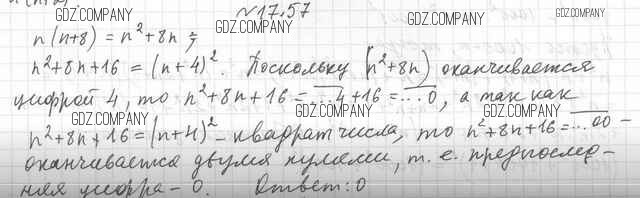 №17.57
n(n+8) = n²+8n ;
n²+8n+16 = (n+4)². Поскольку (n²+8n) оканчивается
цифрой 4, то n²+8n+16 = ...4+16 = ...0, а так как
n²+8n+16 = (n+4)² – квадрат числа, то n²+8n+16 = ...00 –
оканчивается двумя нулями, т. е. предпослед–
няя цифра – 0. Ответ: 0
GDZ.COMPANY
GDZ.COMPANY
GDZ.COMPANY
GDZ.COMPANY
GDZ.COMPANY
GDZ.COMPANY
GDZ.COMPANY